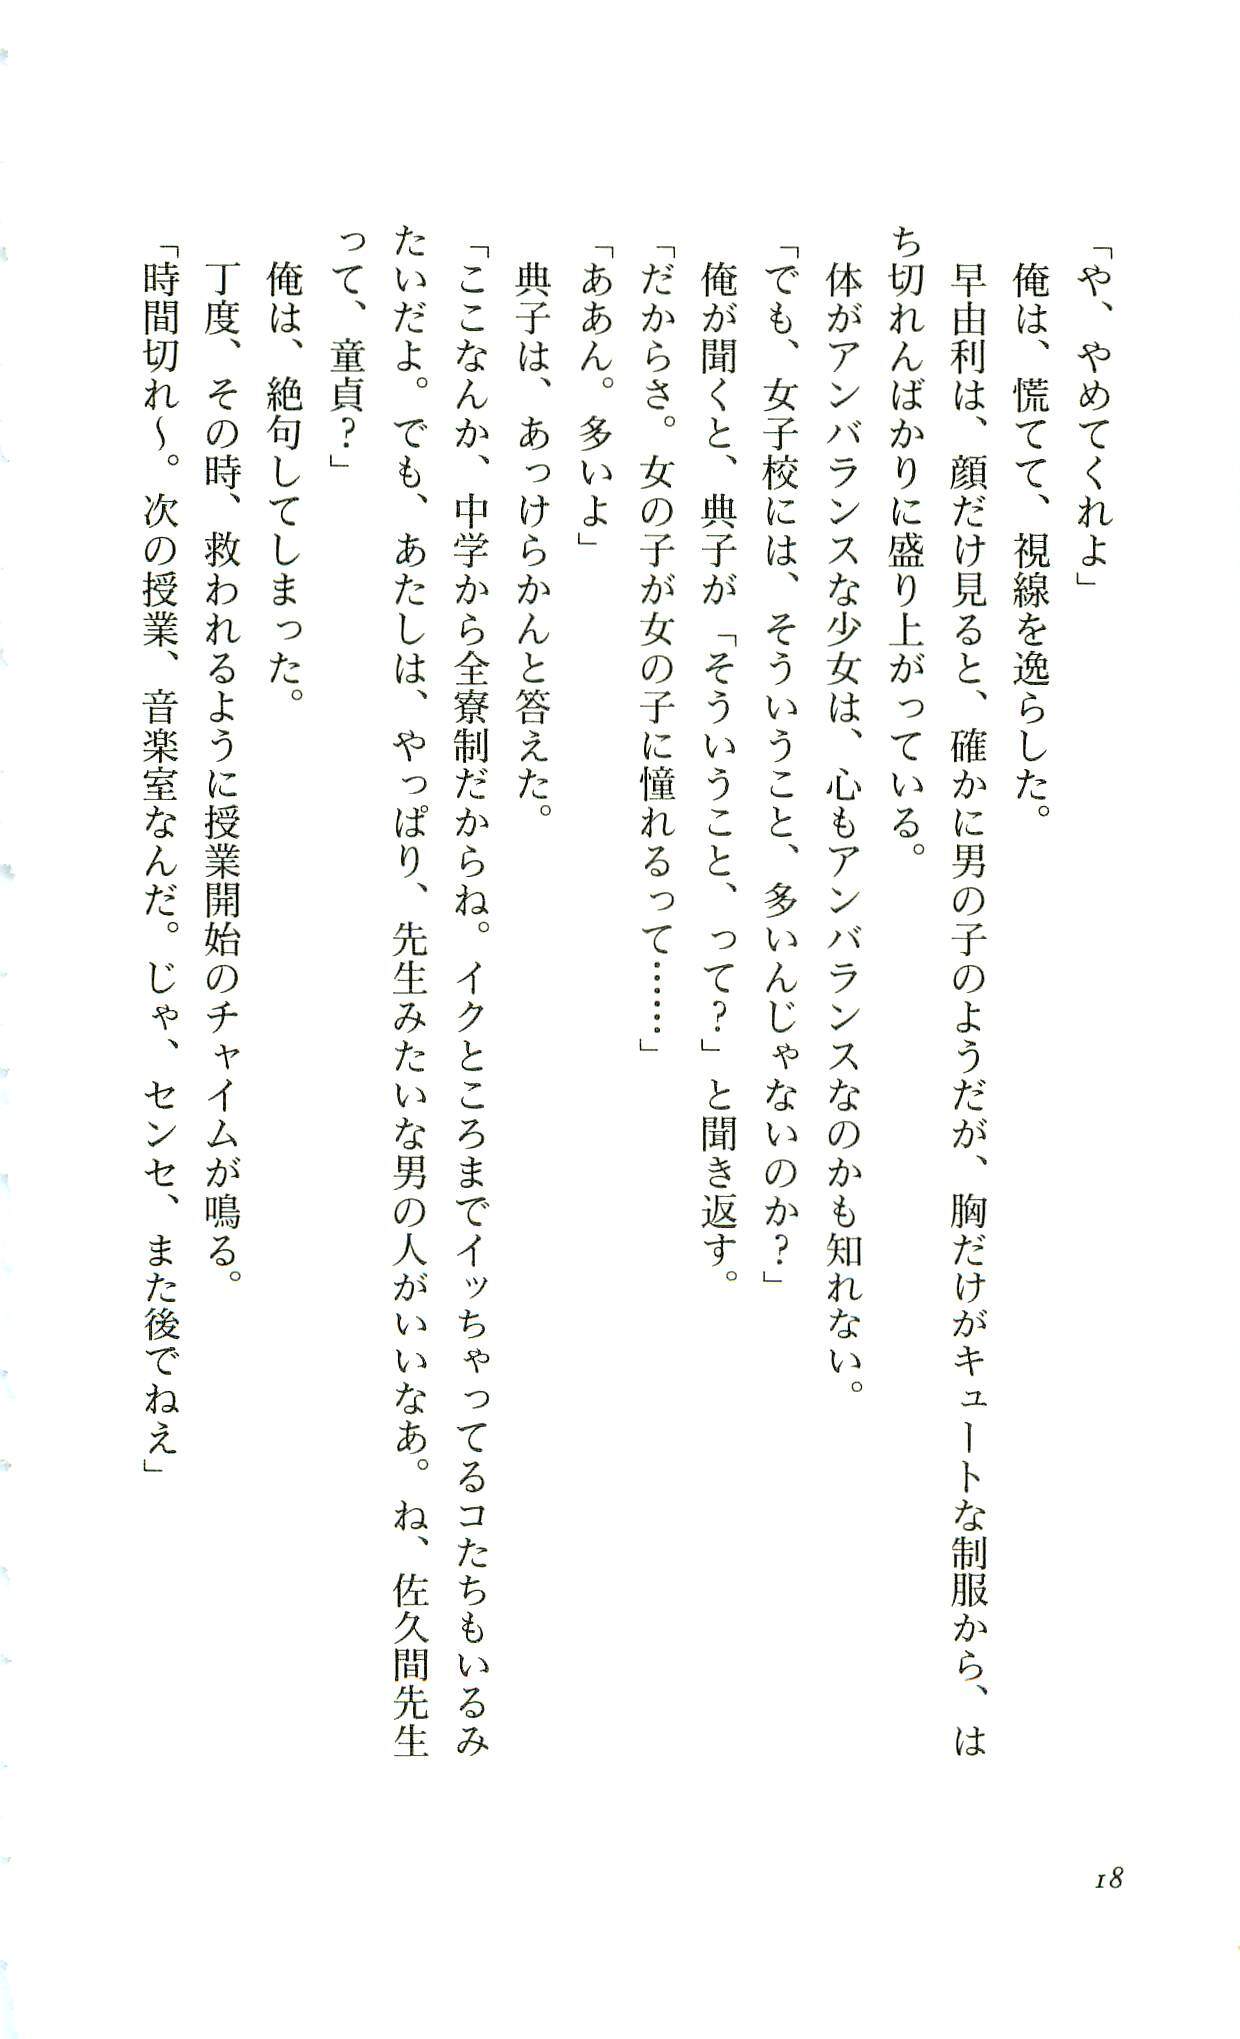 「や、やめてくれよ」
俺は、慌てて、視線を逸らした。
早由利は、顔だけ見ると、確かに男の子のようだが、胸だけがキュートな制服から、は
ち切れんばかりに盛り上がっている。
体がアンバランスな少女は、心もアンバランスなのかも知れない。
「でも、女子校には、そういうこと、多いんじゃないのか？」
俺が聞くと、典子が「そういうこと、って？」と聞き返す。
「だからさ。女の子が女の子に憧れるって……」
「ああん。多いよ」
典子は、あっけらかんと答えた。
「ここなんか、中学から全寮制だからね。イクところまでイッちゃってるコたちもいるみ
たいだよ。でも、あたしは、やっぱり、先生みたいな男の人がいいなあ。ね、佐久間先生
って、童貞？」
俺は、絶句してしまった。
丁度、その時、救われるように授業開始のチャイムが鳴る。
「時間切れ〜。次の授業、音楽室なんだ。じゃ、センセ、また後でねえ」
18